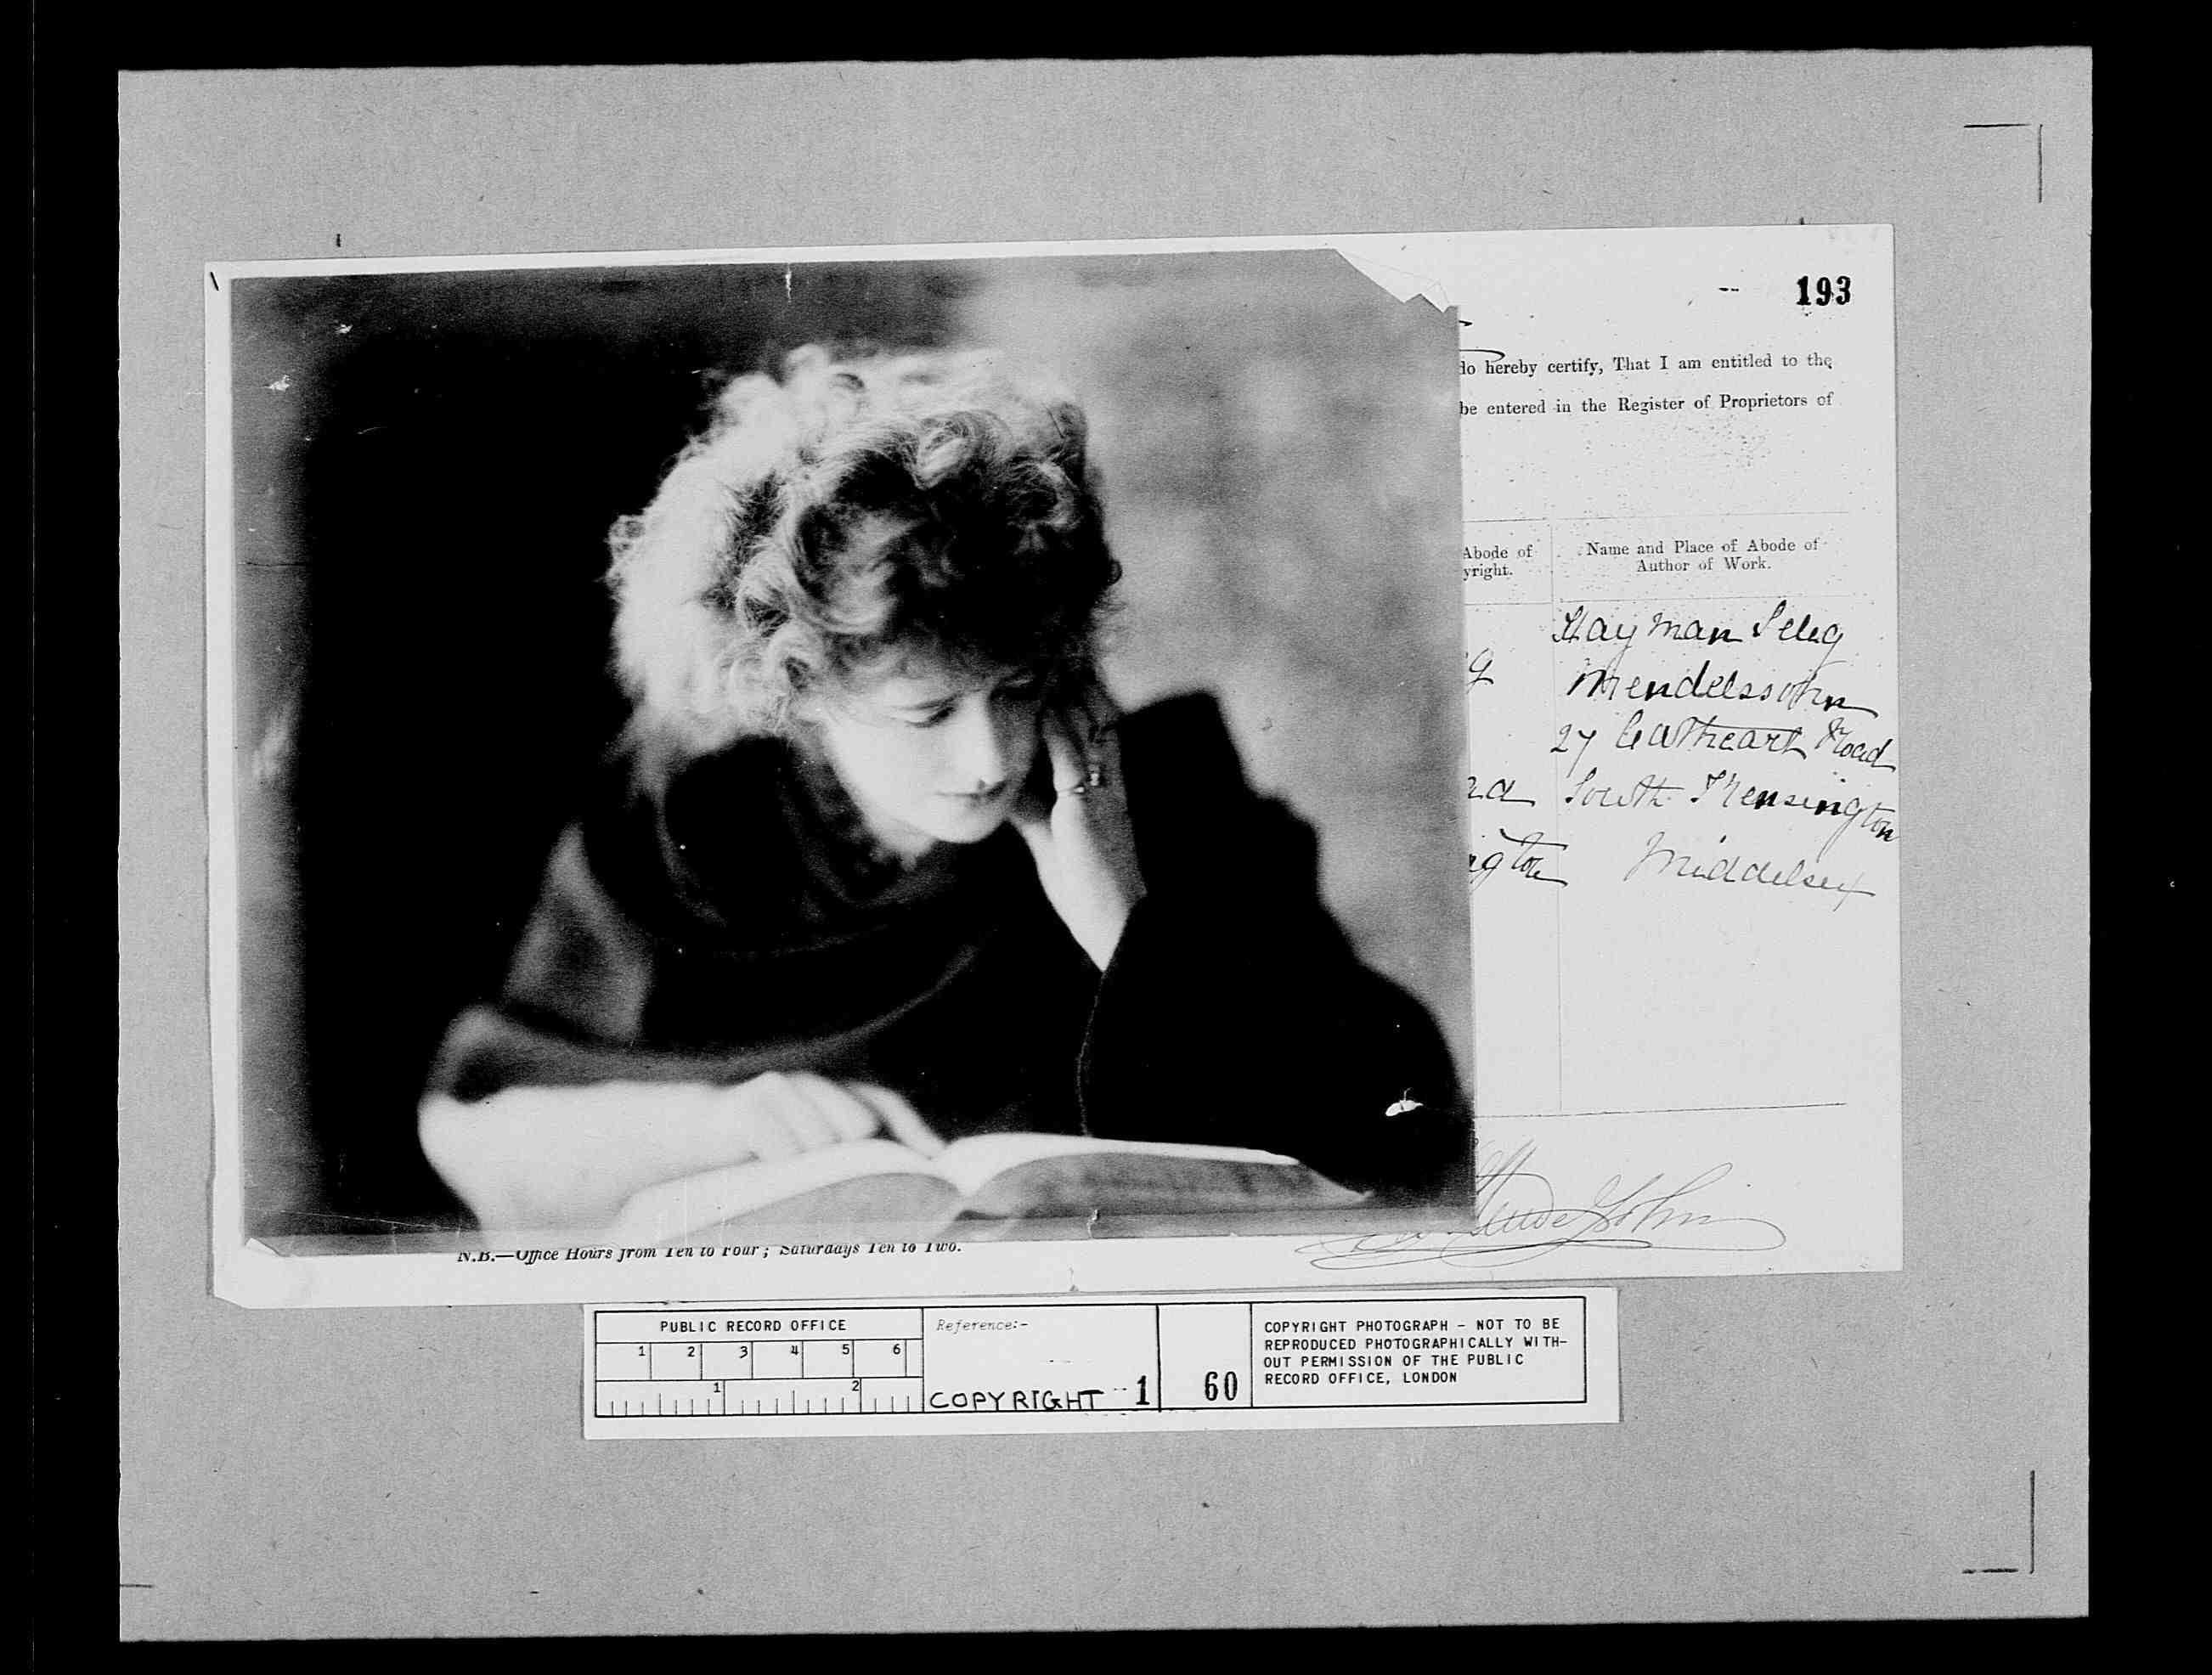 193
do hereby certify, That I am entitled to the
be entered in the Register of Proprietors of
Abode of
yright.
Name and Place of Abode of
Author of Work.
g
ad
ngton
Hayman Seleg
Mendelssohn
27 Cathcart Road
South Kensington
Middelsex
John
N.B.—Office Hours from Ten to Four; Saturdays Ten to Two.
PUBLIC RECORD OFFICE
1 2 3 4 5 6
1 2
Reference:-
COPYRIGHT 1
60
COPYRIGHT PHOTOGRAPH - NOT TO BE
REPRODUCED PHOTOGRAPHICALLY WITH-
OUT PERMISSION OF THE PUBLIC
RECORD OFFICE, LONDON